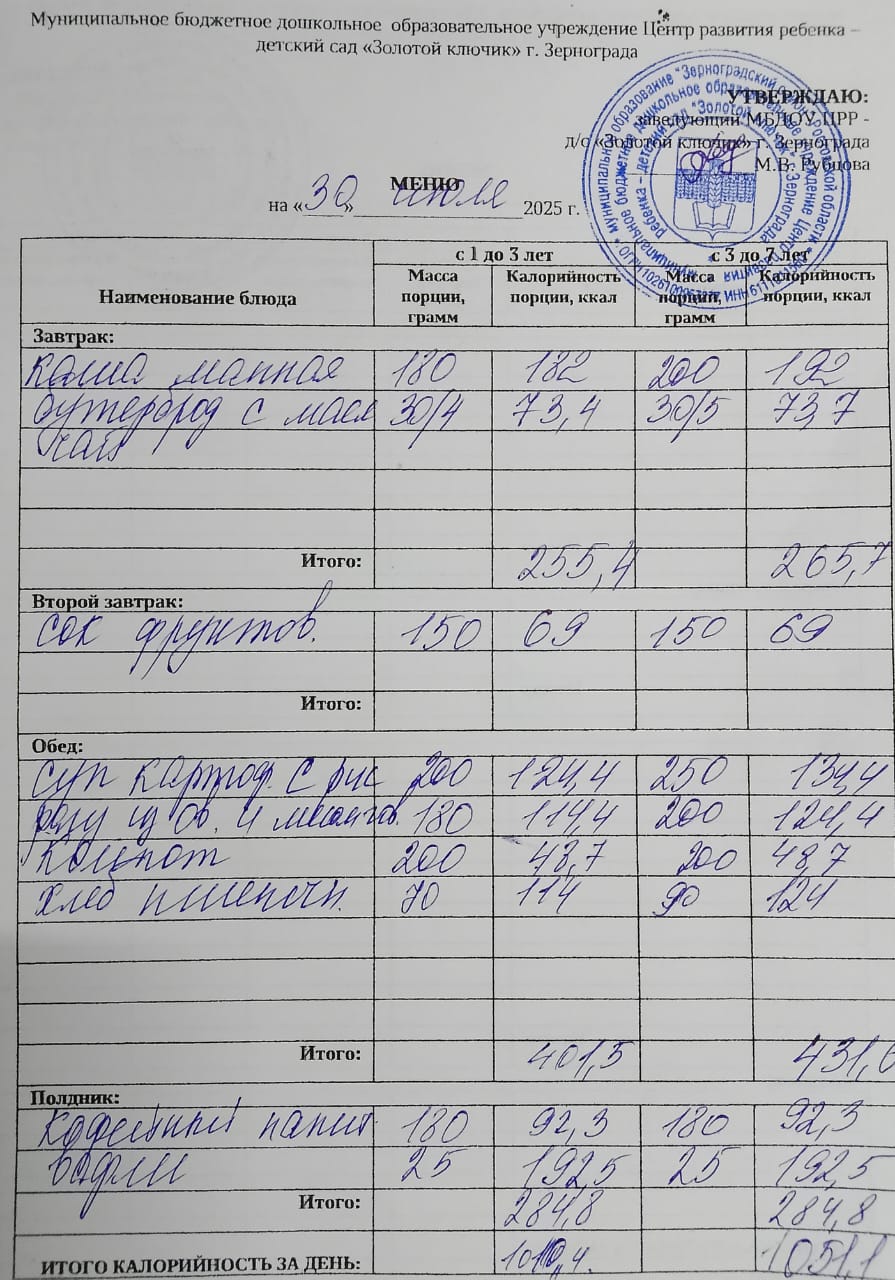 Муниципальное бюджетное дошкольное образовательное учреждение Центр развития ребенка –
детский сад «Золотой ключик» г. Зернограда
УТВЕРЖДАЮ:
заведующий МБДОУ ЦРР -
д/с «Золотой ключик» г. Зернограда
М.В. Рубцова
МЕНЮ
на «30» июля 2025 г.
с 1 до 3 лет с 3 до 7 лет
Наименование блюда Масса порции, грамм Калорийность порции, ккал Масса порции, грамм Калорийность порции, ккал
Завтрак:
каша манная 180 182 200 192
бутерброд с масл 30/4 73,4 30/5 73,7
чай
Итого: 255,4 265,7
Второй завтрак:
сок фруктов. 150 69 150 69
Итого:
Обед:
суп картоф. с рис 200 124,4 250 134,4
рагу из ов. и мясом 180 114,4 200 124,4
компот 200 48,7 200 48,7
хлеб пшеничн. 70 114 90 124
Итого: 401,5 431,6
Полдник:
кофейный напит. 180 92,3 180 92,3
вафли 25 192,5 25 192,5
Итого: 284,8 284,8
ИТОГО КАЛОРИЙНОСТЬ ЗА ДЕНЬ: 1010,4. 1051,1